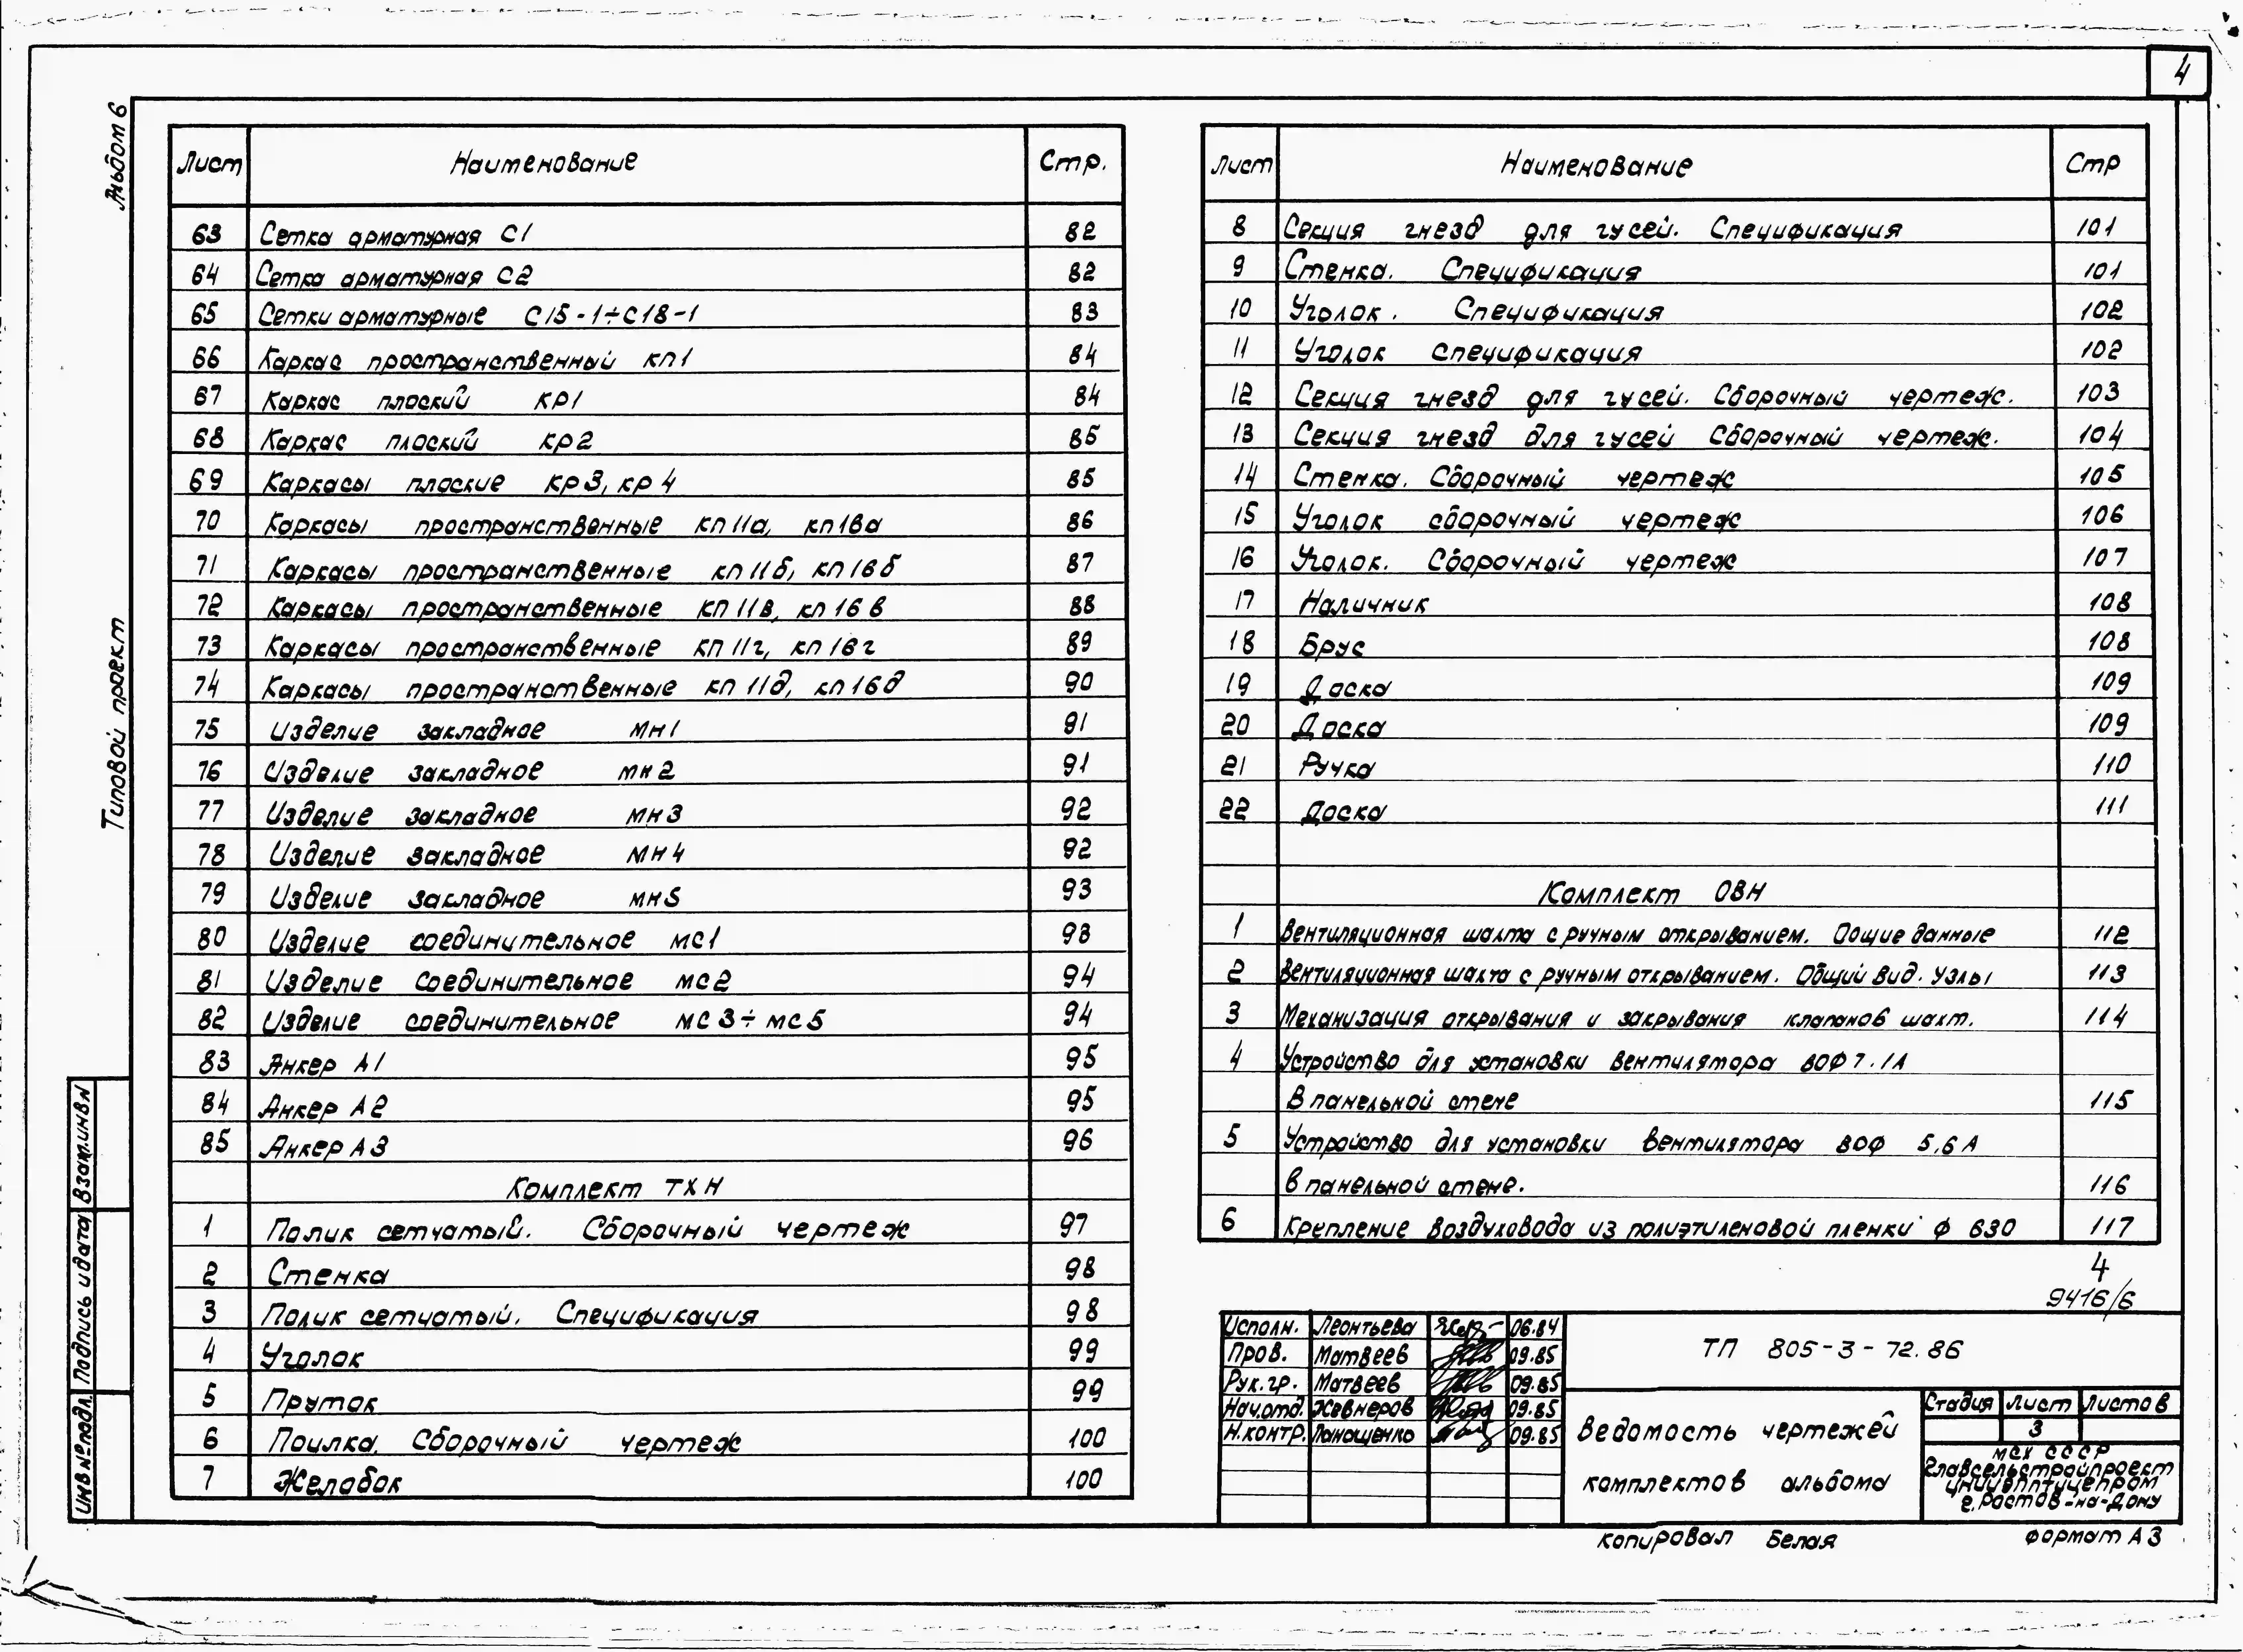 4
Альбом 6
Типовой проект
Лист Наименование Стр.
63 Сетка арматурная С1 82
64 Сетка арматурная С2 82
65 Сетки арматурные С15-1÷С18-1 83
66 Каркас пространственный кп1 84
67 Каркас плоский кр1 84
68 Каркас плоский кр2 85
69 Каркасы плоские кр3, кр4 85
70 Каркасы пространственные кп11а, кп16а 86
71 Каркасы пространственные кп11б, кп16б 87
72 Каркасы пространственные кп11в, кп16в 88
73 Каркасы пространственные кп11г, кп16г 89
74 Каркасы пространственные кп11д, кп16д 90
75 Изделие закладное мн1 91
76 Изделие закладное мн2 91
77 Изделие закладное мн3 92
78 Изделие закладное мн4 92
79 Изделие закладное мн5 93
80 Изделие соединительное мс1 93
81 Изделие соединительное мс2 94
82 Изделие соединительное мс3÷мс5 94
83 Анкер А1 95
84 Анкер А2 95
85 Анкер А3 96
Комплект ТХН
1 Полик сетчатый. Сборочный чертеж 97
2 Стенка 98
3 Полик сетчатый. Спецификация 98
4 Уголок 99
5 Пруток 99
6 Поилка. Сборочный чертеж 100
7 Желобок 100
Лист Наименование Стр
8 Секция гнезд для гусей. Спецификация 101
9 Стенка. Спецификация 101
10 Уголок. Спецификация 102
11 Уголок спецификация 102
12 Секция гнезд для гусей. Сборочный чертеж. 103
13 Секция гнезд для гусей Сборочный чертеж. 104
14 Стенка. Сборочный чертеж 105
15 Уголок сборочный чертеж 106
16 Уголок. Сборочный чертеж 107
17 Наличник 108
18 Брус 108
19 Доска 109
20 Доска 109
21 Ручка 110
22 Доска 111
Комплект ОВН
1 Вентиляционная шахта с ручным открыванием. Общие данные 112
2 Вентиляционная шахта с ручным открыванием. Общий вид. Узлы 113
3 Механизация открывания и закрывания клапанов шахт. 114
4 Устройство для установки вентилятора ВОФ 7.1А
В панельной стене 115
5 Устройство для установки вентилятора ВОФ 5,6А
в панельной стене. 116
6 Крепление воздуховода из полиэтиленовой пленки ф 630 117
4
9416/6
Исполн. Леонтьева 06.84
Пров. Матвеев 09.85
Рук.гр. Матвеев 09.85
Нач.отд. Жевнеров 09.85
Н.контр. Панащенко 09.85
ТП 805-3-72.86
Ведомость чертежей
комплектов альбома
Стадия Лист Листов
3
МСХ СССР
Главсельстройпроект
ЦНИИЭПптицепром
г. Ростов-на-Дону
Взам.инвN
Подпись и дата
Инв№подл.
копировал Белая
формат А3